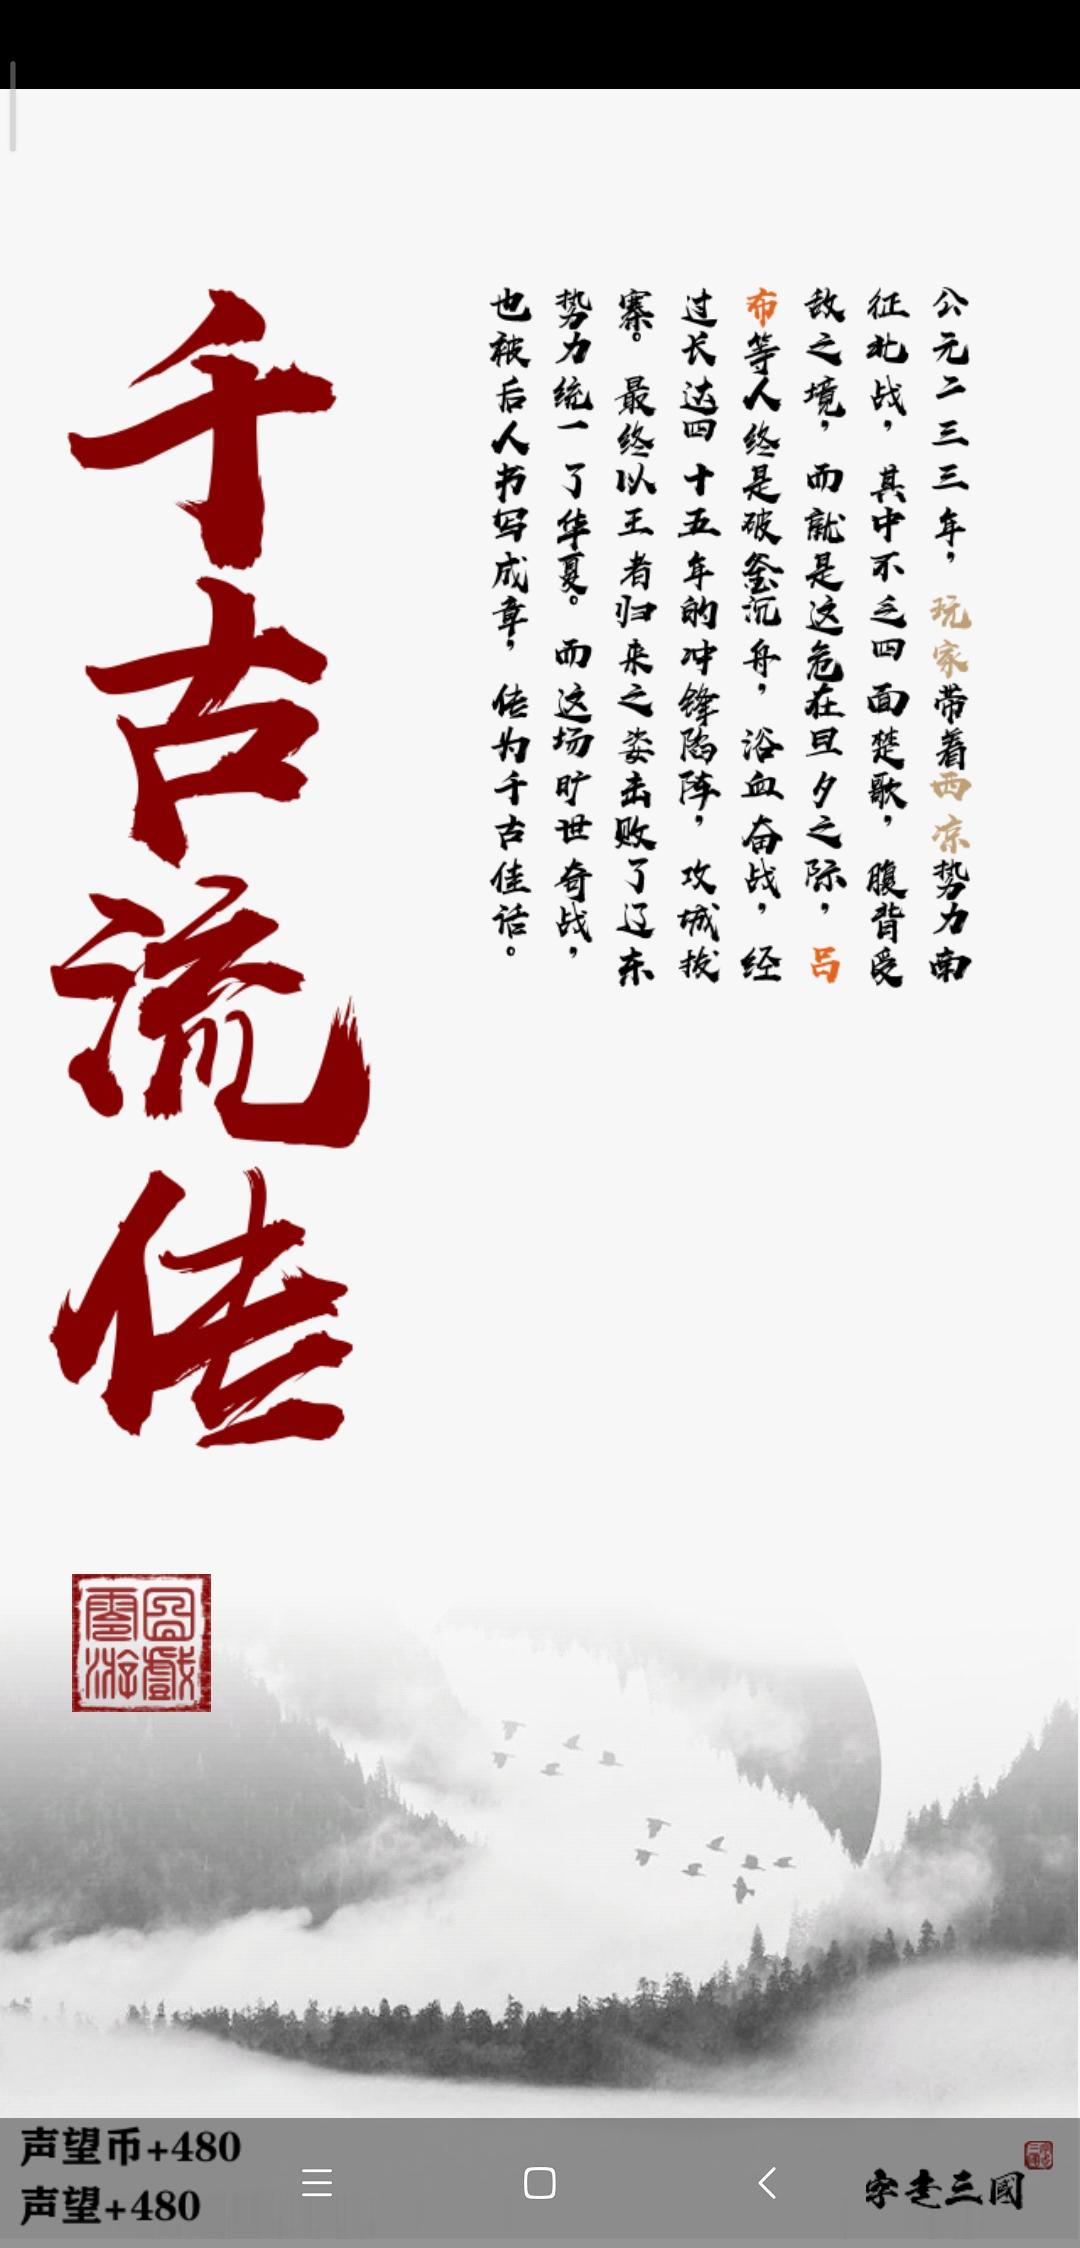 公元二三三年，玩家带着西凉势力南
征北战，其中不乏四面楚歌，腹背受
敌之境，而就是这危在旦夕之际，吕
布等人终是破釜沉舟，浴血奋战，经
过长达四十五年的冲锋陷阵，攻城拔
寨。最终以王者归来之姿击败了辽东
势力统一了华夏。而这场旷世奇战，
也被后人书写成章，传为千古佳话。
千古流传
声望币+480
声望+480